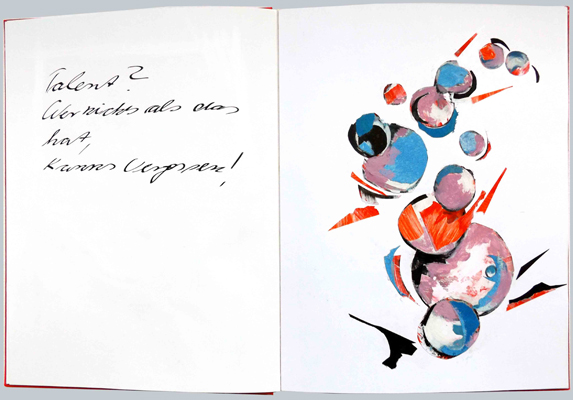 Talent?
Wer nichts als das
hat,
kann es vergessen!